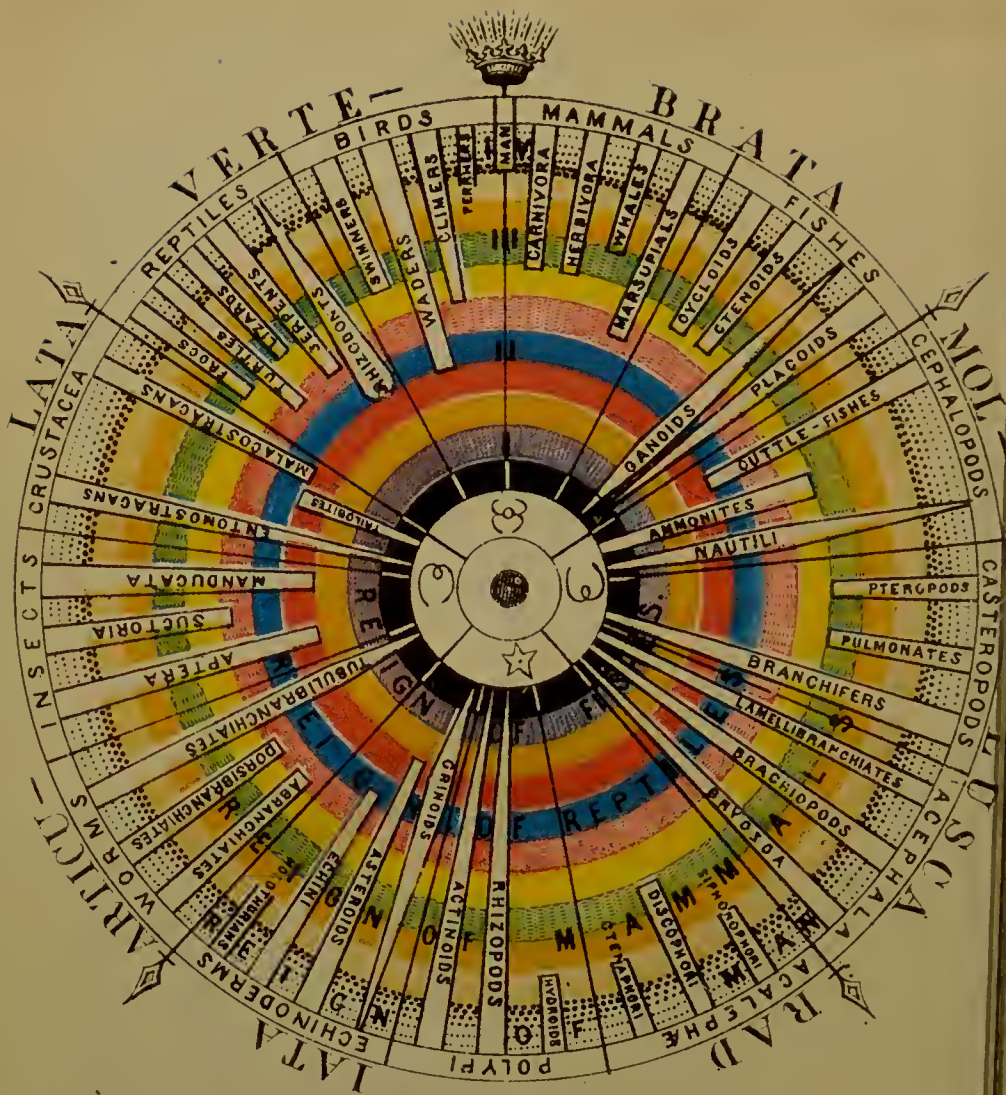 VERTE-
BRATA
MOL-
LUSCA
RAD-
IATA
ARTICU-
LATA
MAN
MAMMALS
FISHES
CEPHALOPODS
CASTEROPODS
ACEPHALA
ACALEPHÆ
POLYPI
ECHINODERMS
WORMS
INSECTS
CRUSTACEA
REPTILES
BIRDS
CARNIVORA
HERBIVORA
WHALES
MARSUPIALS
CYCLOIDS
CTENOIDS
GANOIDS
PLACOIDS
CUTTLE-FISHES
AMMONITES
NAUTILI
PTEROPODS
PULMONATES
BRANCHIFERS
LAMELLIBRANCHIATES
BRACHIOPODS
BRYOZOA
SIPHONOPHORI
DISCOPHORI
HYDROIDS
RHIZOPODS
ACTINOIDS
CRINOIDS
ASTEROIDS
ECHINI
ABRANCHIATES
DORSIBRANCHIATES
TUBULIBRANCHIATES
APTERA
SUCTORIA
MANDUCATA
ENTOMOSTRACANS
TRILOBITES
MALACOSTRACANS
TURTLES
LIZARDS
SERPENTS
RHIZODONTS
SWIMMERS
WADERS
CLIMERS
I
II
III
REIGN OF FISHES.
REIGN OF REPTILES.
REIGN OF MAMMALS
REIGN OF MAN